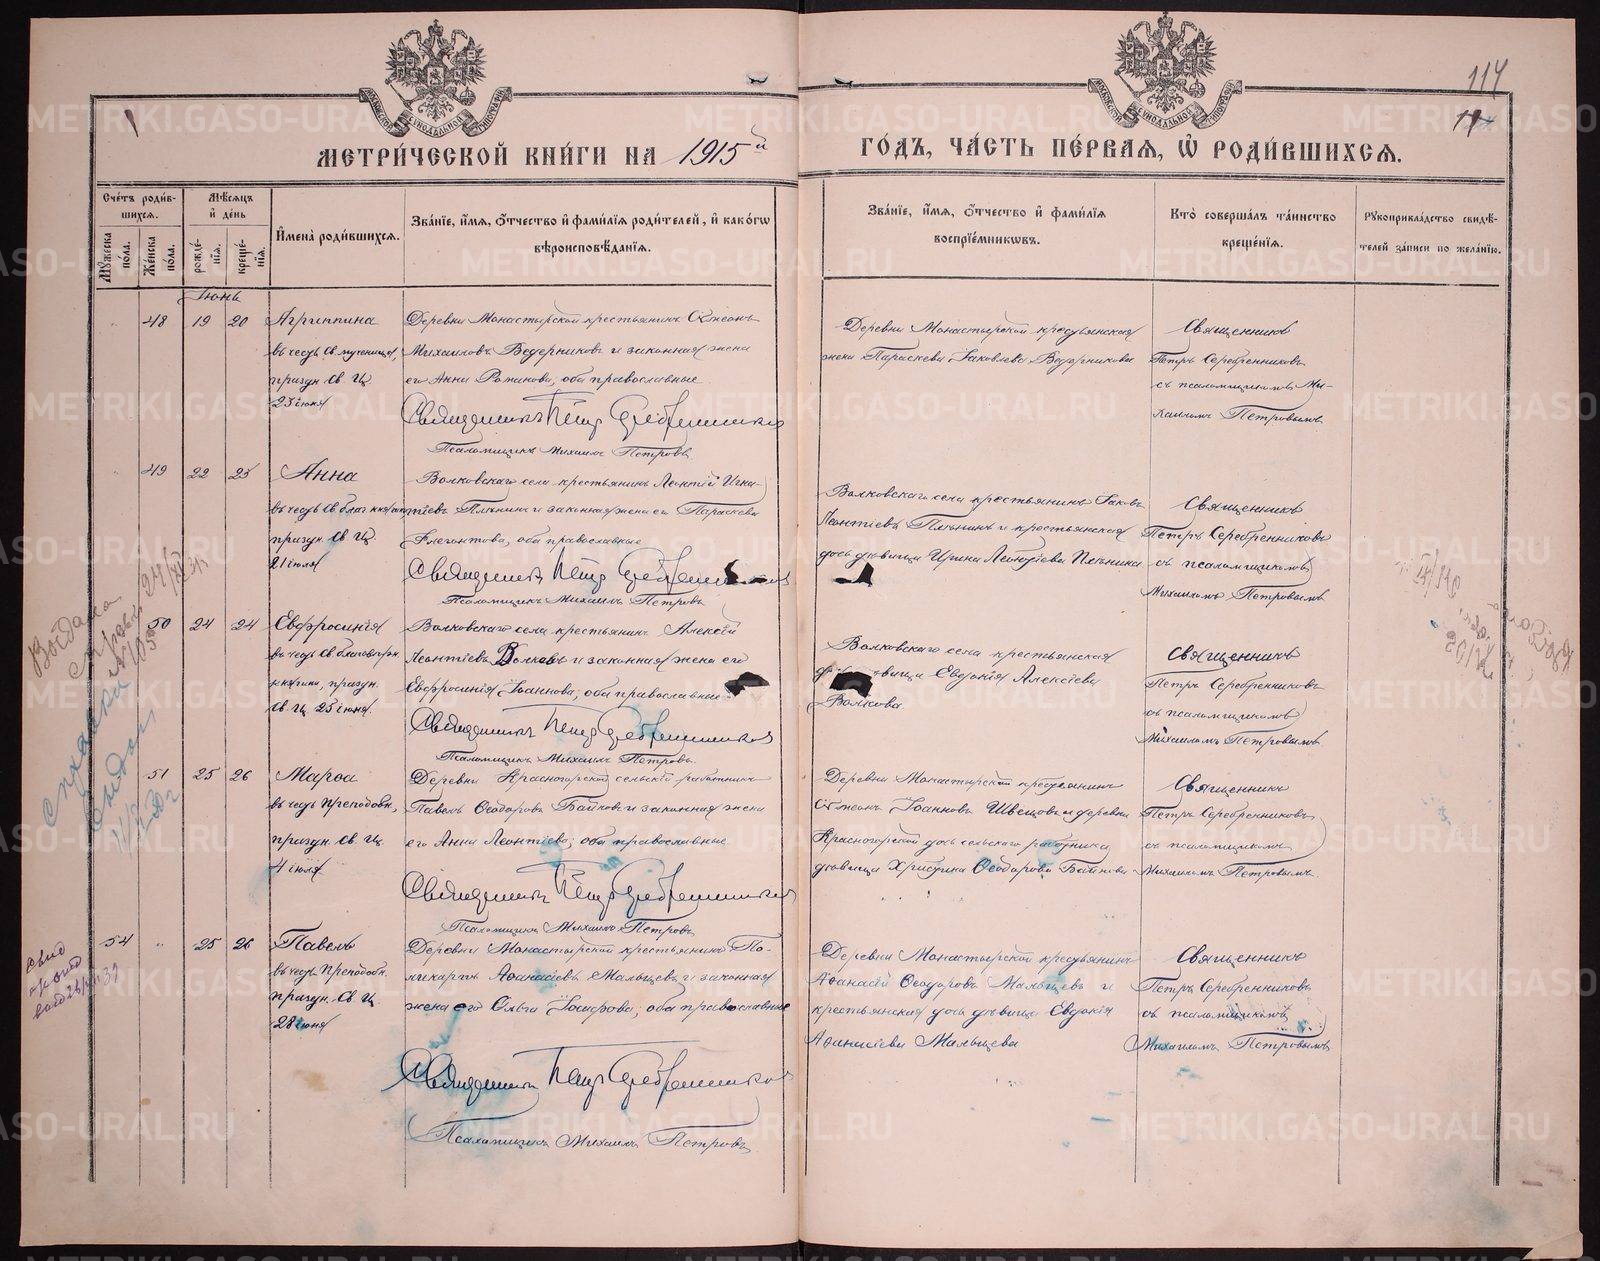 114
МЕТРИ́ЧЕСКОЙ КНИ́ГИ НА 1915й
ГО́ДЪ, ЧА́СТЬ ПЕ́РВАЯ, Ѡ҆ РОДИ́ВШИХСЯ.
Сче́тъ роди́в-
шихся.
Му́жеска по́ла.
Же́нска по́ла.
Мѣ́сяцъ
и҆ де́нь
рожде́-
нїя.
креще́-
нїя.
И҆мена̀ роди́вшихся.
Зва́нїе, и҆́мя, ѻ҆́тчество и҆ фами́лїя роди́телей, и҆ како́гѡ
вѣроисповѣ́данїя.
Зва́нїе, и҆́мя, ѻ҆́тчество и҆ фами́лїя
воспрїе́мникѡвъ.
Кто̀ соверша́лъ та́инство
креще́нїя.
Рꙋкоприкла́дство свидѣ́-
телей за́писи по жела́нїю.
Іюнь
48 19 20 Агриппина
въ честь св. мученицы,
праздн. св. ц.
23 іюня
Деревни Монастырской крестьянинъ Сѵмеонъ
Михаиловъ Ведерниковъ и законная жена
его Анна Романова, оба православные
Священникъ Петръ Серебренниковъ
Псаломщикъ Михаилъ Петровъ
Деревни Монастырской крестьянская
жена Параскева Іаковлева Ведерникова
Священникъ
Петръ Серебренниковъ
съ псаломщикомъ Ми-
хаиломъ Петровымъ
49 22 23 Анна
въ честь св. благ. княгини
праздн. св. ц.
21 іюля
Волковскаго села крестьянинъ Леонтій Игна-
тіевъ Пльнинъ и законная жена его Параскева
Флегонтова, оба православные
Священникъ Петръ Серебренниковъ
Псаломщикъ Михаилъ Петровъ
Волковскаго села крестьянинъ Іаковъ
Леонтіевъ Пльнинъ и крестьянская
дочь дѣвица Ирина Леонтіева Пльнина
Священникъ
Петръ Серебренниковъ
съ псаломщикомъ
Михаиломъ Петровымъ
50 24 24 Евфросинія
въ честь св. благовѣрн.
княгини, праздн.
св. ц. 25 іюня
Волковскаго села крестьянинъ Алексій
Леонтіевъ Волковъ и законная жена его
Евфросинія Іоаннова, оба православные
Священникъ Петръ Серебренниковъ
Псаломщикъ Михаилъ Петровъ
Волковскаго села крестьянская
дѣвица Евдокія Алексіева
Волкова
Священникъ
Петръ Серебренниковъ
съ псаломщикомъ
Михаиломъ Петровымъ
51 25 26 Марѳа
въ честь преподобн.,
праздн. св. ц.
4 іюля
Деревни Красногорской сельскій работникъ
Павелъ Ѳеодоровъ Банковъ и законная жена
его Анна Леонтіева, оба православные
Священникъ Петръ Серебренниковъ
Псаломщикъ Михаилъ Петровъ
Деревни Монастырской крестьянинъ
Сѵмеонъ Іоанновъ Швецовъ и деревни
Красногорской дочь сельскаго работника
дѣвица Христина Ѳеодорова Банкова
Священникъ
Петръ Серебренниковъ
съ псаломщикомъ
Михаиломъ Петровымъ
54 „ 25 26 Павелъ
въ честь преподобн.
праздн. св. ц.
28 іюня
Деревни Монастырской крестьянинъ По-
ликарпъ Аѳанасіевъ Мальцевъ и законная
жена его Ольга Іосифова, оба православные
Священникъ Петръ Серебренниковъ
Псаломщикъ Михаилъ Петровъ
Деревни Монастырской крестьянинъ
Аѳанасій Ѳеодоровъ Мальцевъ и
крестьянская дочь дѣвица Евдокія
Аѳанасіева Мальцева
Священникъ
Петръ Серебренниковъ
съ псаломщикомъ
Михаиломъ Петровымъ
Выдана
справка
№105
METRIKI.GASO-URAL.RU